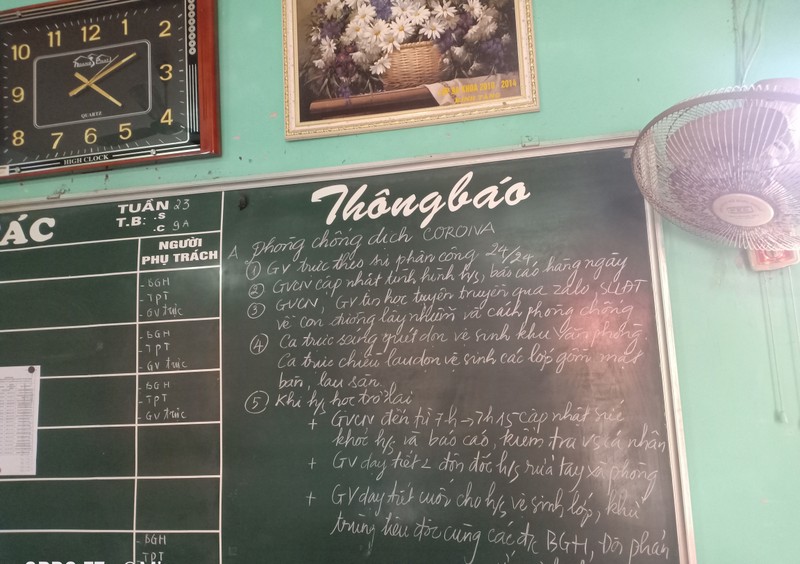 11 12 1
10 2
9 3
8 4
7 6 5
QUARTZ
HIGH CLOCK
KHÓA 2010 - 2014
ÁC
TUẦN 23
T.B: .S
.C 9A
NGƯỜI
PHỤ TRÁCH
- BGH
- TPT
- GV trực
- BGH
- TPT
- GV trực
- BGH
- TPT
- GV trực
- BGH
TPT
Thông báo
A phòng chống dịch CORONA
① GV trực theo sự phân công 24/24
② GVCN cập nhật tình hình h/s, báo cáo hàng ngày
③ GVCN, GV tin học tuyên truyền qua zalo SLLĐT
về con đường lây nhiễm và cách phòng chống
④ Ca trực sáng quét dọn vệ sinh khu văn phòng.
Ca trực chiều lau dọn vệ sinh các lớp gồm mặt
bàn, lau sàn
⑤ Khi h/s học trở lại
+ GVCN đến từ 7h → 7h15 cập nhật sức
khỏe h/s và báo cáo, kiểm tra vs cá nhân
+ GV dạy tiết 2 đôn đốc h/s rửa tay xà phòng
+ GV dạy tiết cuối cho h/s vệ sinh lớp, khử
trùng tiêu độc cùng các đ/c BGH, Đội phân